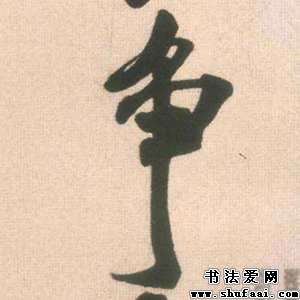 争
书法爱网
www.shufaai.com